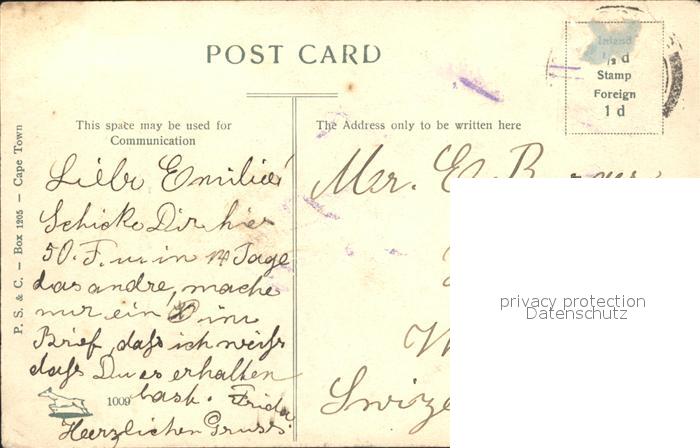 POST CARD
Inland
½ d
Stamp
Foreign
1 d
This space may be used for
Communication
The Address only to be written here
P. S. & C. — Box 1205 — Cape Town
Liebe Emilie!
Schicke Dir hier
50. F. u. in 14 Tage
das andre, mache
mir ein im
Brief, daß ich weiß
daß Du es erhalten
hast. Frida
Herzlichen Gruss.
1009
Mer. E.
privacy protection
Datenschutz